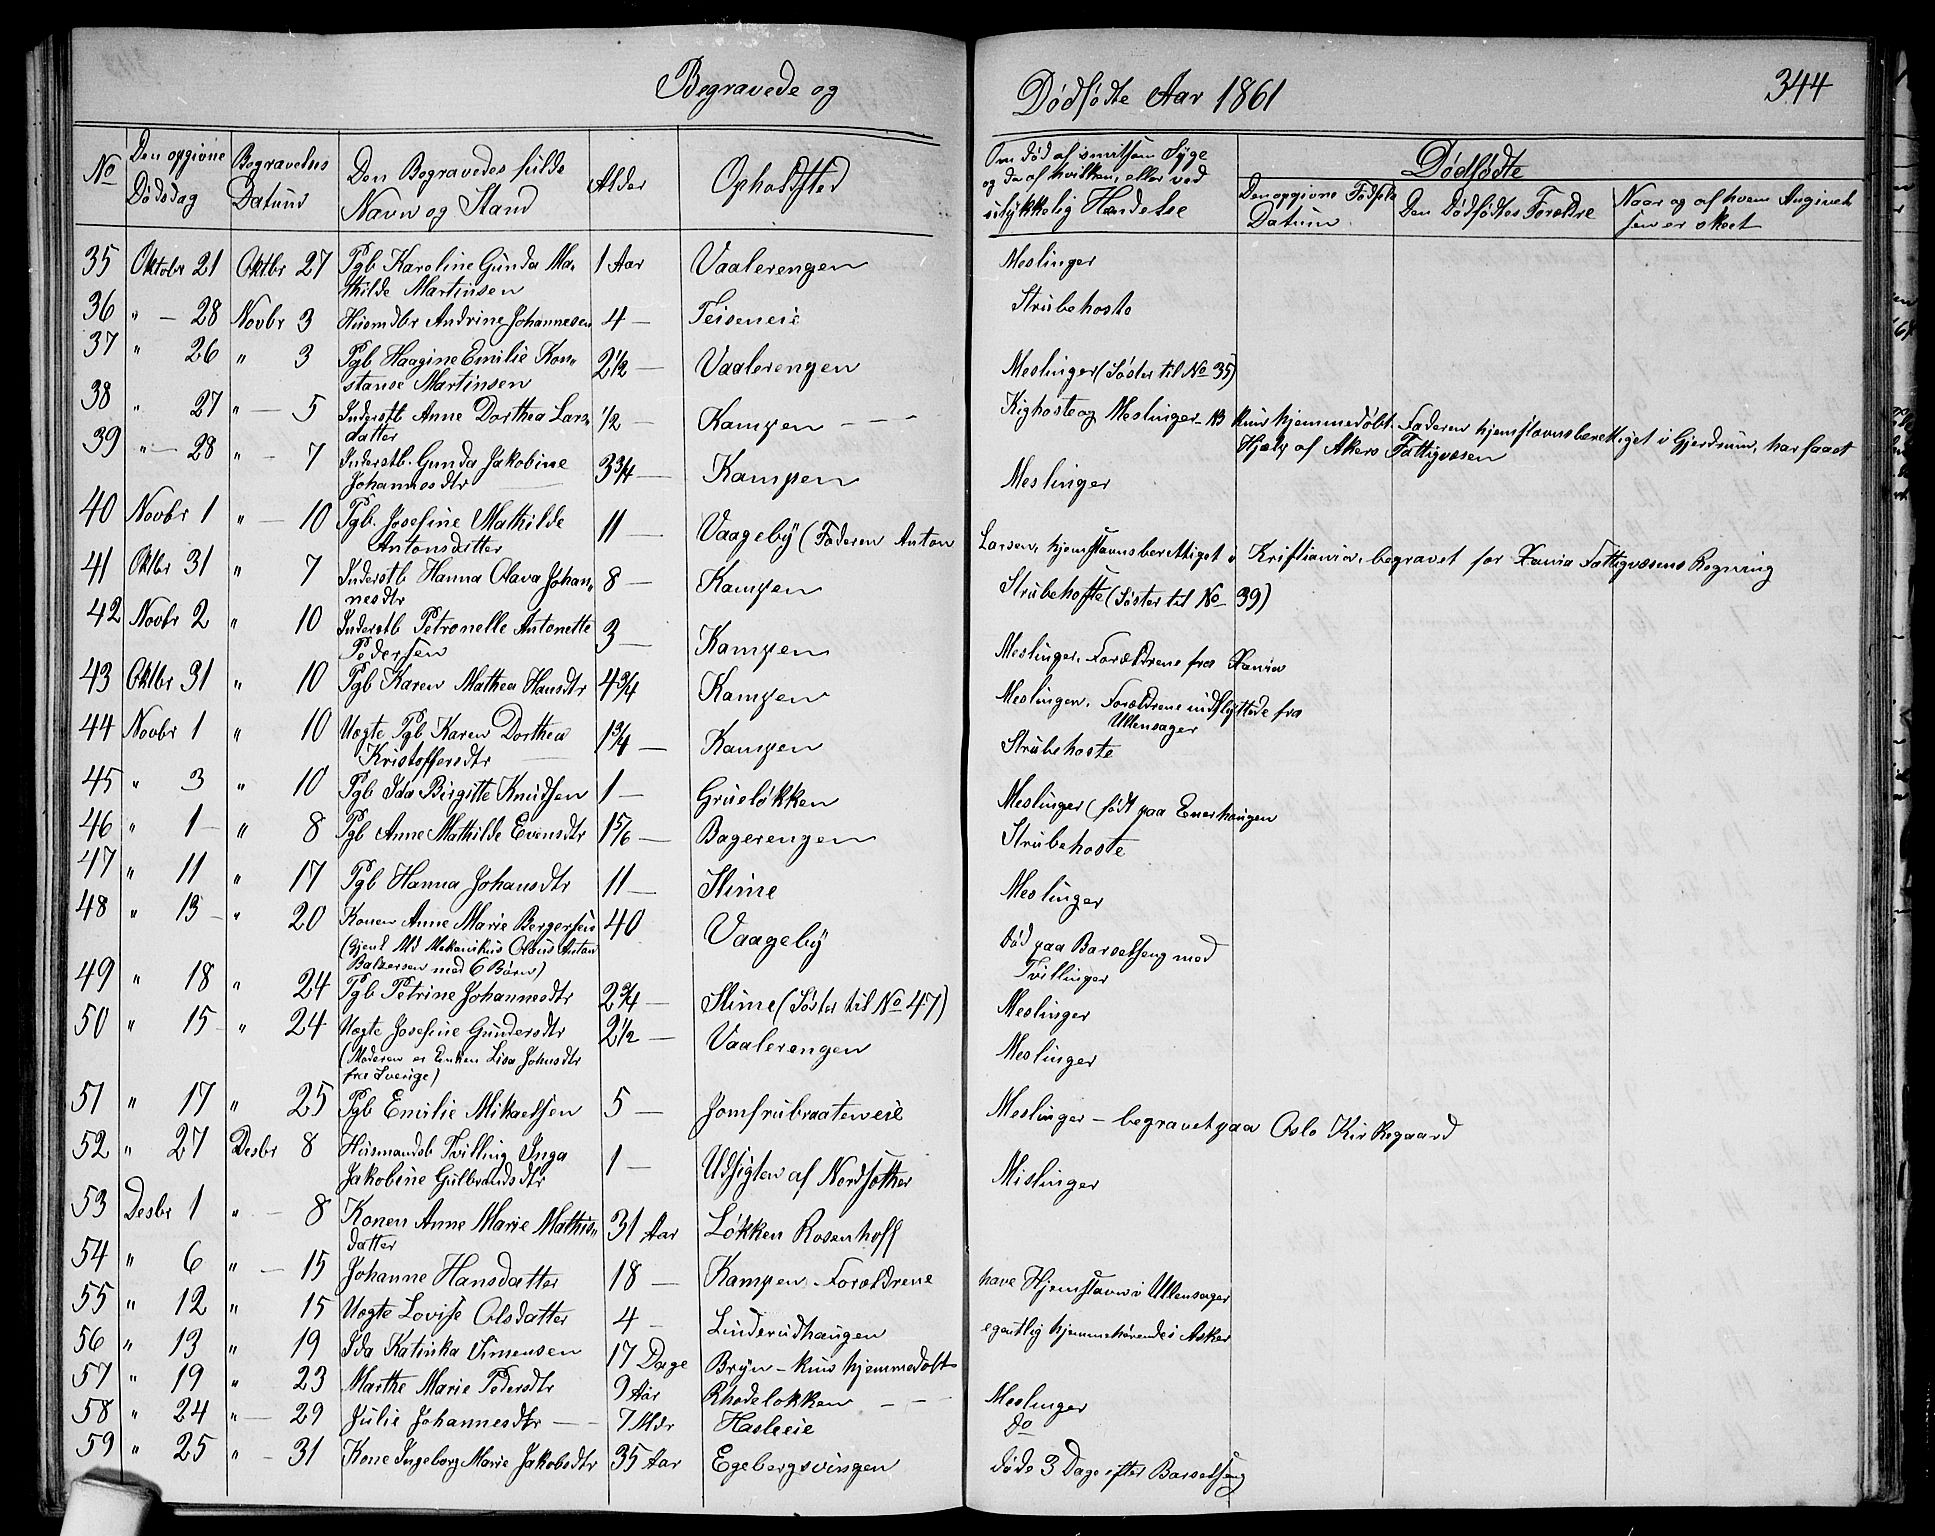 Begravede og Dødfødte Aar 1861 344
No Den opgivne Dødsdag Begravelses Datum Den Begravedes fulde Navn og Stand Alder Opholdsted Om død af smitsom Syge og da af hvilken, eller ved ulykkelig Hændelse Dødfødte
Den opgivne Fødsels Datum Den Dødfødtes Forældre Naar og af hvem Angivelsen er skeet
35 Oktobr 21 Oktbr 27 Pgb Karoline Gunda Ma- 1 Aar Vaalerengen Meslinger
thilde Martinsen
36 " — 28 Novbr 3 Husmdbr Andrine Johannesen 4 — Teiseneie Strubehoste
37 " 26 " 3 Pgb Haagine Emilie Kon- 2 1/2 — Vaalerengen Meslinger (Søster til No 35)
stanse Martinsen
38 " 27 " — 5 Inderstb Anne Dorthea Lars- 1/2 — Kampen — — Kighoste og Meslinger — NB kun hjemmedøbt. Faderen hjemstavnsberettiget i Gjerdrum, har faaet
datter Hjælp af Akers Fattigvæsen
39 " — 28 " — 7 Inderstb. Gunda Jakobine 3 3/4 — Kampen Meslinger
Johannesdtr
40 Novbr 1 " — 10 Pgb. Josefine Mathilde 11 — Vaageby (Faderen Anton Larsen, hjemstavnsberettiget i Kristiania, begravet for Xania Fattigvæsens Regning
Antonsdatter
41 Oktbr 31 " 7 Inderstb Hanna Olava Johan- 8 — Kampen Strubehoste (Søster til No 39)
nesdtr
42 Novbr 2 " 10 Inderstb Petronelle Antonette 3 — Kampen Meslinger. Forældrene fra Xania
Pedersen
43 Oktbr 31 " 10 Pgb Karen Mathea Hansdtr 4 3/4 Kampen Meslinger. Forældrene indflyttede fra
Ullensager
44 Novbr 1 " 10 Uægte Pgb Karen Dorthea 1 3/4 — Kampen Strubehoste
Kristoffersdtr
45 " 3 " 10 Pgb Ida Birgitte Knudsen 1 — Grueløkken Meslinger (født paa Enerhaugen
46 " 1 — " 8 Pgb Anne Mathilde Evensdtr 1 5/6 — Bagerengen Strubehoste
47 " 11 " 17 Pgb Hanna Johansdtr 11 — Stime Meslinger
48 " 13 — " 20 Konen Anne Marie Bergersen 40 Vaageby død paa Barselseng med
(Gjenl Md Mekanikus Olaus Anton Tvillinger
Balzersen med 6 Børn)
49 " 18 " 24 Pgb Petrine Johannesdtr 2 3/4 — Stime (Søster til No 47) Meslinger
50 " 15 — " 24 Uægte Josefine Gundersdtr 2 1/2 — Vaalerengen Meslinger
(Moderen er Enken Lisa Johnsdtr
fra Sverige)
51 " 17 " 25 Pgb Emilie Mikaelsen 5 — Jomfrubraateneie Meslinger — begravet paa Oslo Kirkegaard
52 " 27 Desbr 8 Husmandsb Tvilling Inga 1 — Udsigten af Nordsother Mislinger
Jakobine Gulbrandsdtr
53 Desbr 1 " — 8 Konen Anne Marie Mathis- 31 Aar Løkken Rosenhoff
datter
54 " 6 " — 15 Johanne Hansdatter 18 — Kampen — Forældrene have Hjemstavn i Ullensager
55 " 12 " 15 Uægte Lovise Olsdatter 4 — Linderudhaugen egentlig hjemmehørende i Asker
56 " 13 " 19 Ida Katinka Simensen 17 Dage Bryn — kun hjemmedøbt
57 " 19 " 23 Marthe Marie Pedersdtr 9 Aar Rhodeløkken — — Meslinger
58 " 24 " — 29 Julie Johannesdtr — — 7 Mdr Hasleeie do
59 " 25 " — 31 Kone Ingeborg Marie Jakobsdtr 35 Aar Egebergsvingen døde 3 Dage efter Barselseng